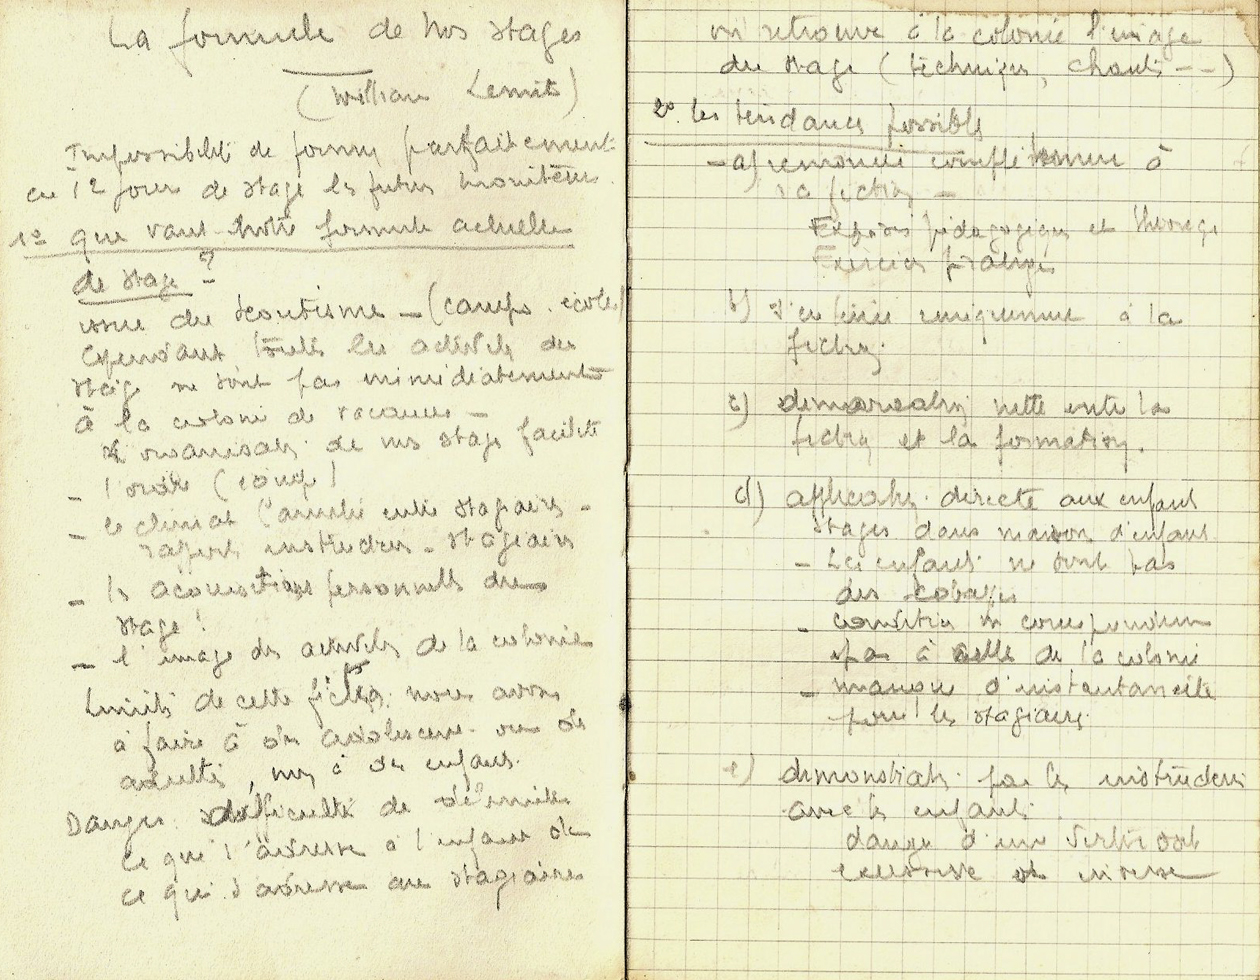 La formule de nos stages
(William Lemit)
Impossibilité de former parfaitement
en 12 jours de stage les futurs moniteurs
1° que vaut notre formule actuelle
de stage ?
issue du scoutisme - (camps. écoles)
Cependant toutes les activités du
stage ne sont pas immédiatement
à la colonie de vacances -
L'organisation de nos stages facilite
- l'ordre (
- le climat l'amitié entre stagiaires -
rapports instructeurs - stagiaires
- les acquisitions personnelles du
stage !
- l'image des activités de la colonie
Limites de cette fiction. nous avons
à faire à des adolescents ou des
adultes, non à des enfants.
Danger difficulté de délimiter
ce qui s'adresse à l'enfant de
ce qui s'adresse au stagiaire
on retrouve à la colonie l'image
du stage (techniques, chants - -)
2°. les tendances possibles
- a) renoncer complètement à
la fiction -
Exposés pédagogiques et théoriques
Exercices pratiques
b) s'en tenir uniquement à la
fiction.
c) démarcation nette entre la
fiction et la formation.
d) application directe aux enfants
stages dans maison d'enfants
- Les enfants ne sont pas
des cobayes
- condition ne correspondant
pas à celle de la colonie
- manque d'instantanéité
pour les stagiaires.
e) démonstration par les instructeurs
avec les enfants.
danger d'une
excessive et